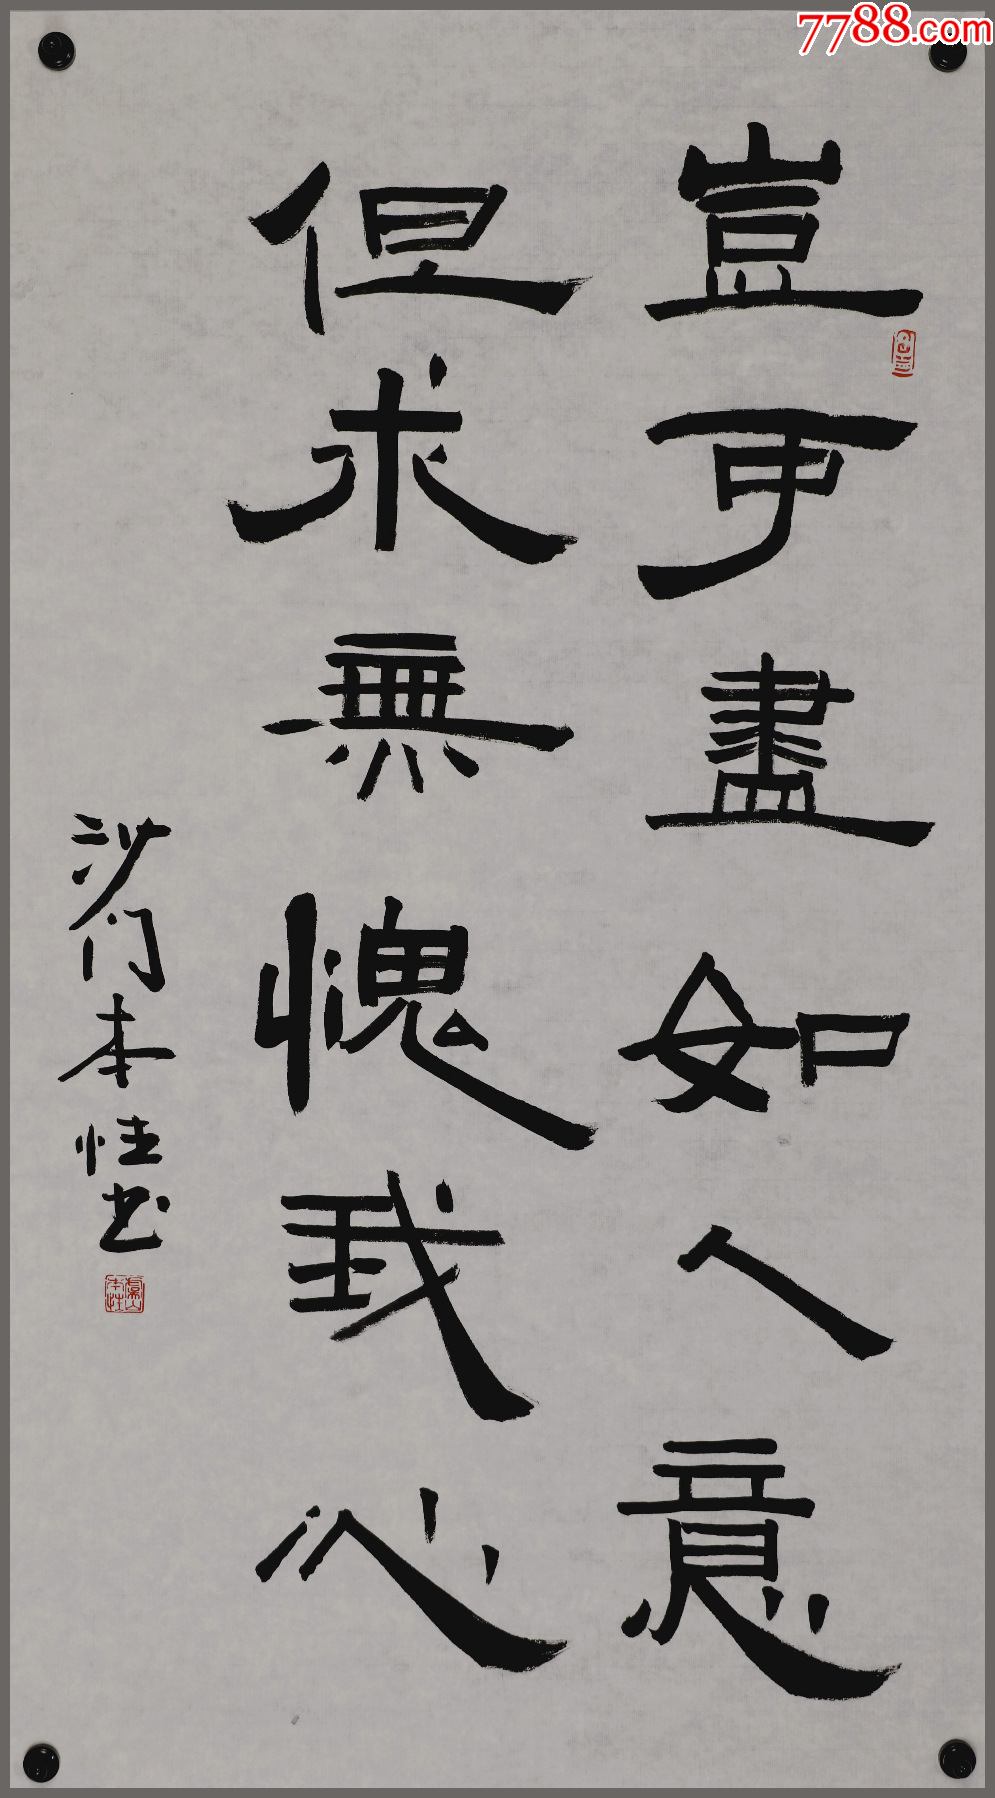 7788.com
豈可盡如人意
但求無愧我心
沙门本性书